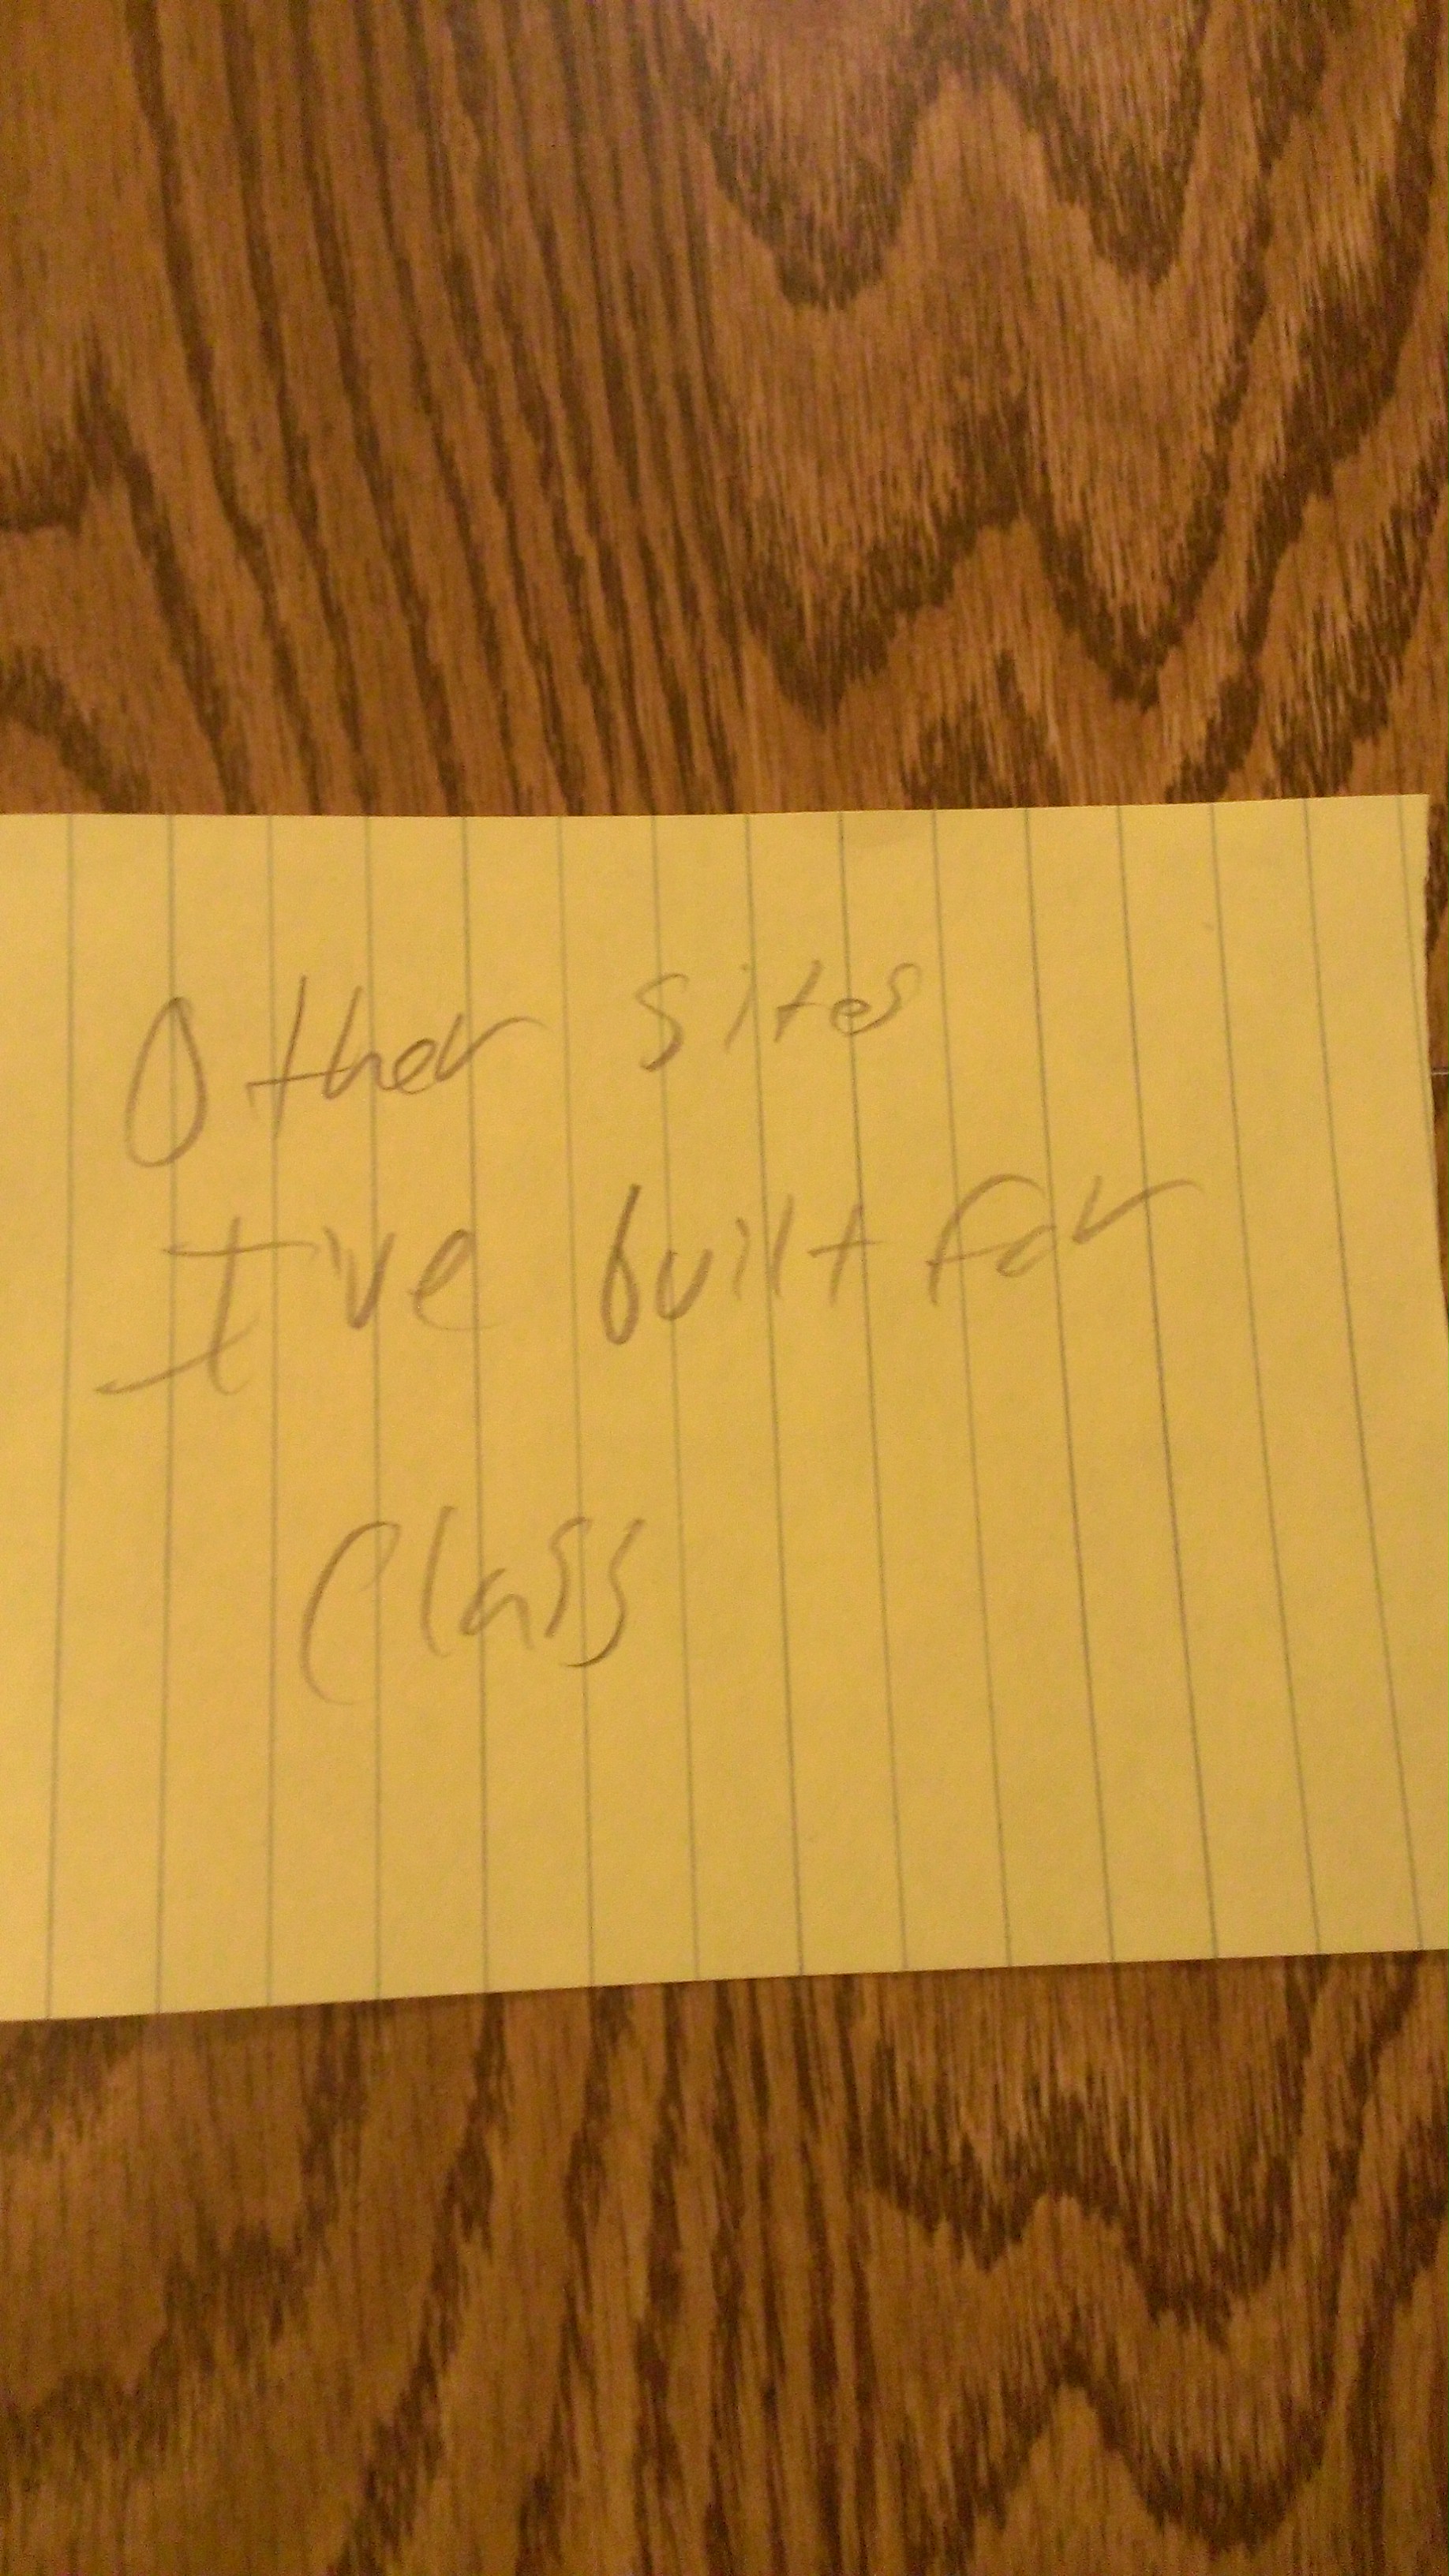 Other sites
I've built for
Class